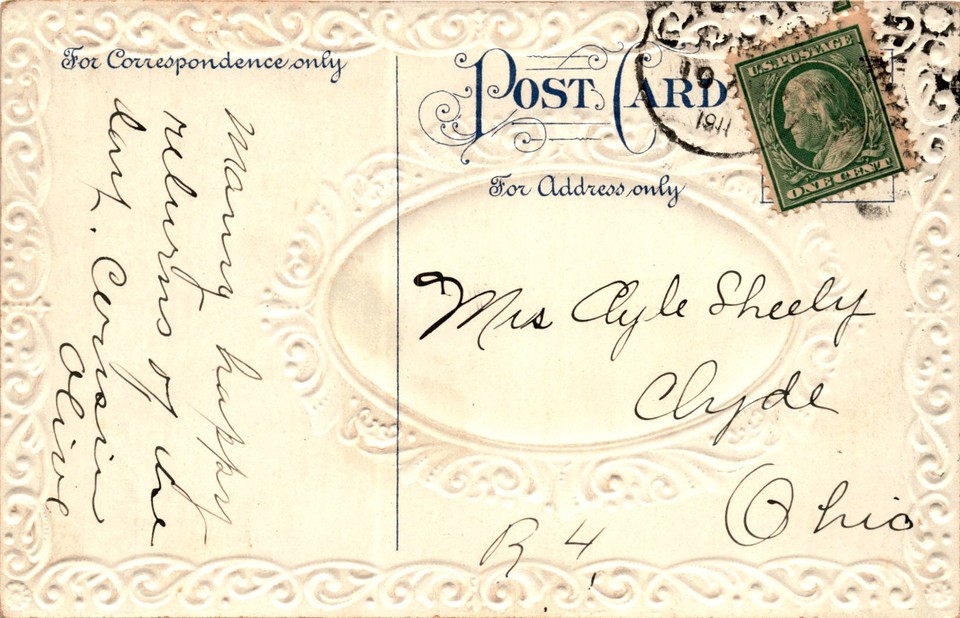 For Correspondence only
Many happy
returns of the
day. Cousin
Olive
POST CARD
For Address only
19
1911
U.S. POSTAGE
ONE CENT
Mrs Clyde Sheely
Clyde
Ohio
R 4